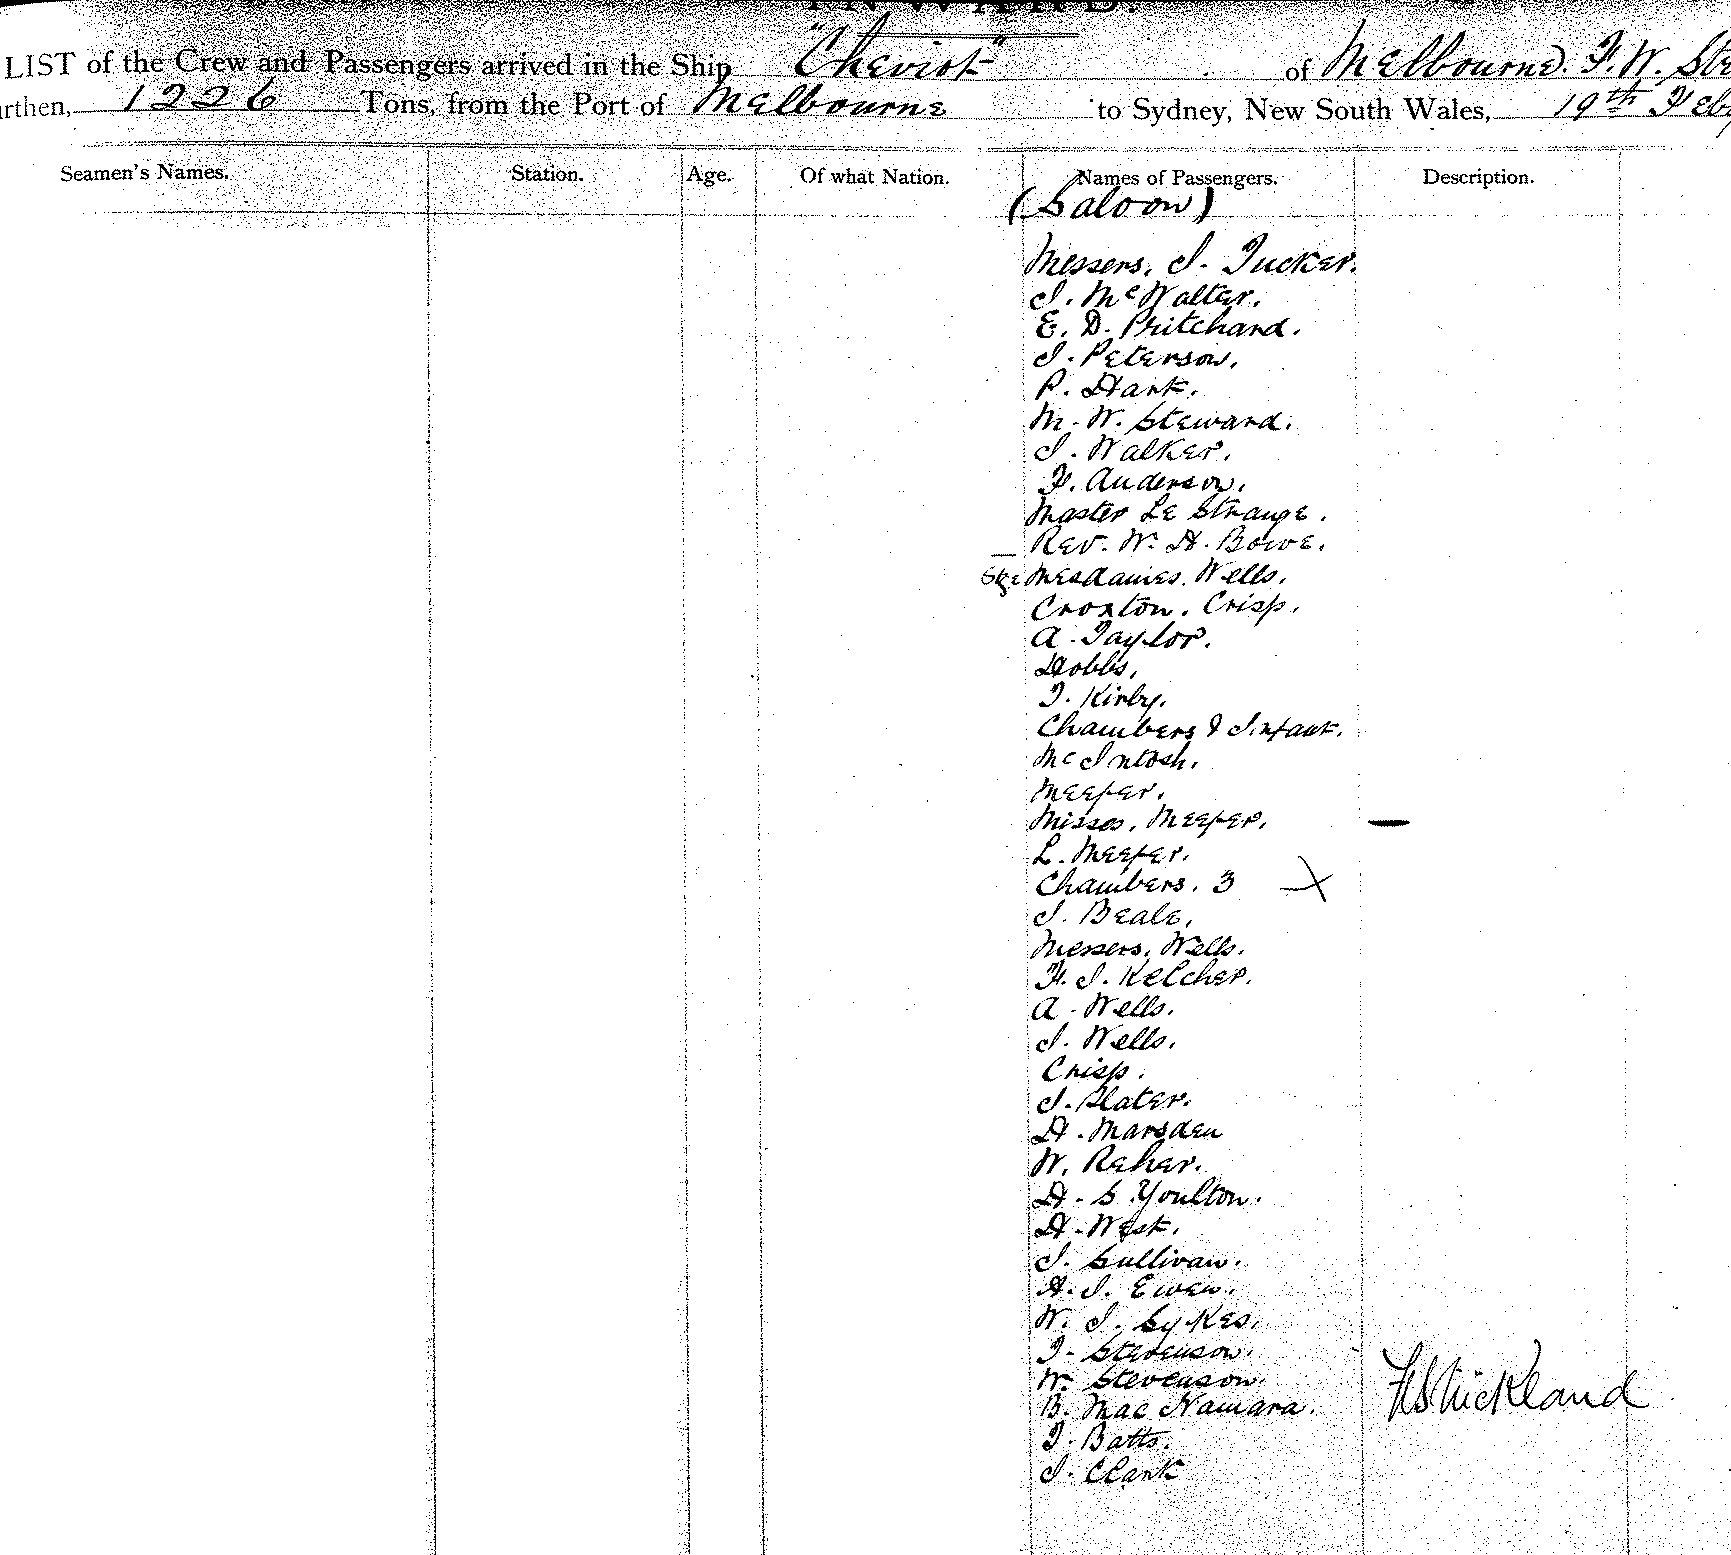 LIST of the Crew and Passengers arrived in the Ship "Cheviot" of Melbourne. F. W. Str
urthen, 1226 Tons, from the Port of Melbourne to Sydney, New South Wales, 19th Feby
Seamen's Names. Station. Age. Of what Nation. Names of Passengers. Description.
(Saloon)
Messers. J. Tucker.
J. McWalter.
E. D. Pritchard.
J. Peterson.
P. Hark.
M. W. Steward.
J. Walker.
F. Anderson.
Master Le Strange.
Rev. W. H. Bowe.
Mesdames. Wells.
Croxton. Crisp.
A. Taylor.
Hobbs.
T. Kirby.
Chambers & Infant.
McIntosh.
Meefer.
Misses. Meefer.
L. Meefer.
Chambers. 3
J. Beale.
Messers. Wells.
F. J. Kelcher.
A. Wells.
J. Wells.
Crisp.
J. Slater.
H. Marsden
W. Reher.
H. S. Youlton.
H. West.
J. Sullivan.
H. J. Ewen.
W. J. Sykes.
T. Stevenson.
W. Stevenson.
B. Mac Namara.
T. Batts.
J. Clark
FStrickland